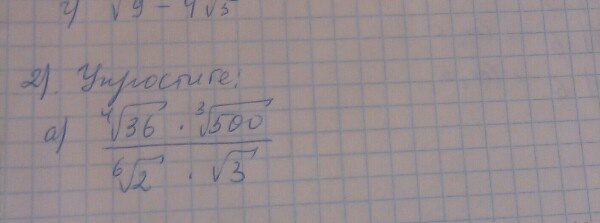 г) √9 - 4√5
2). Упростите:
а) ⁴√36 · ³√500
⁶√2 · √3